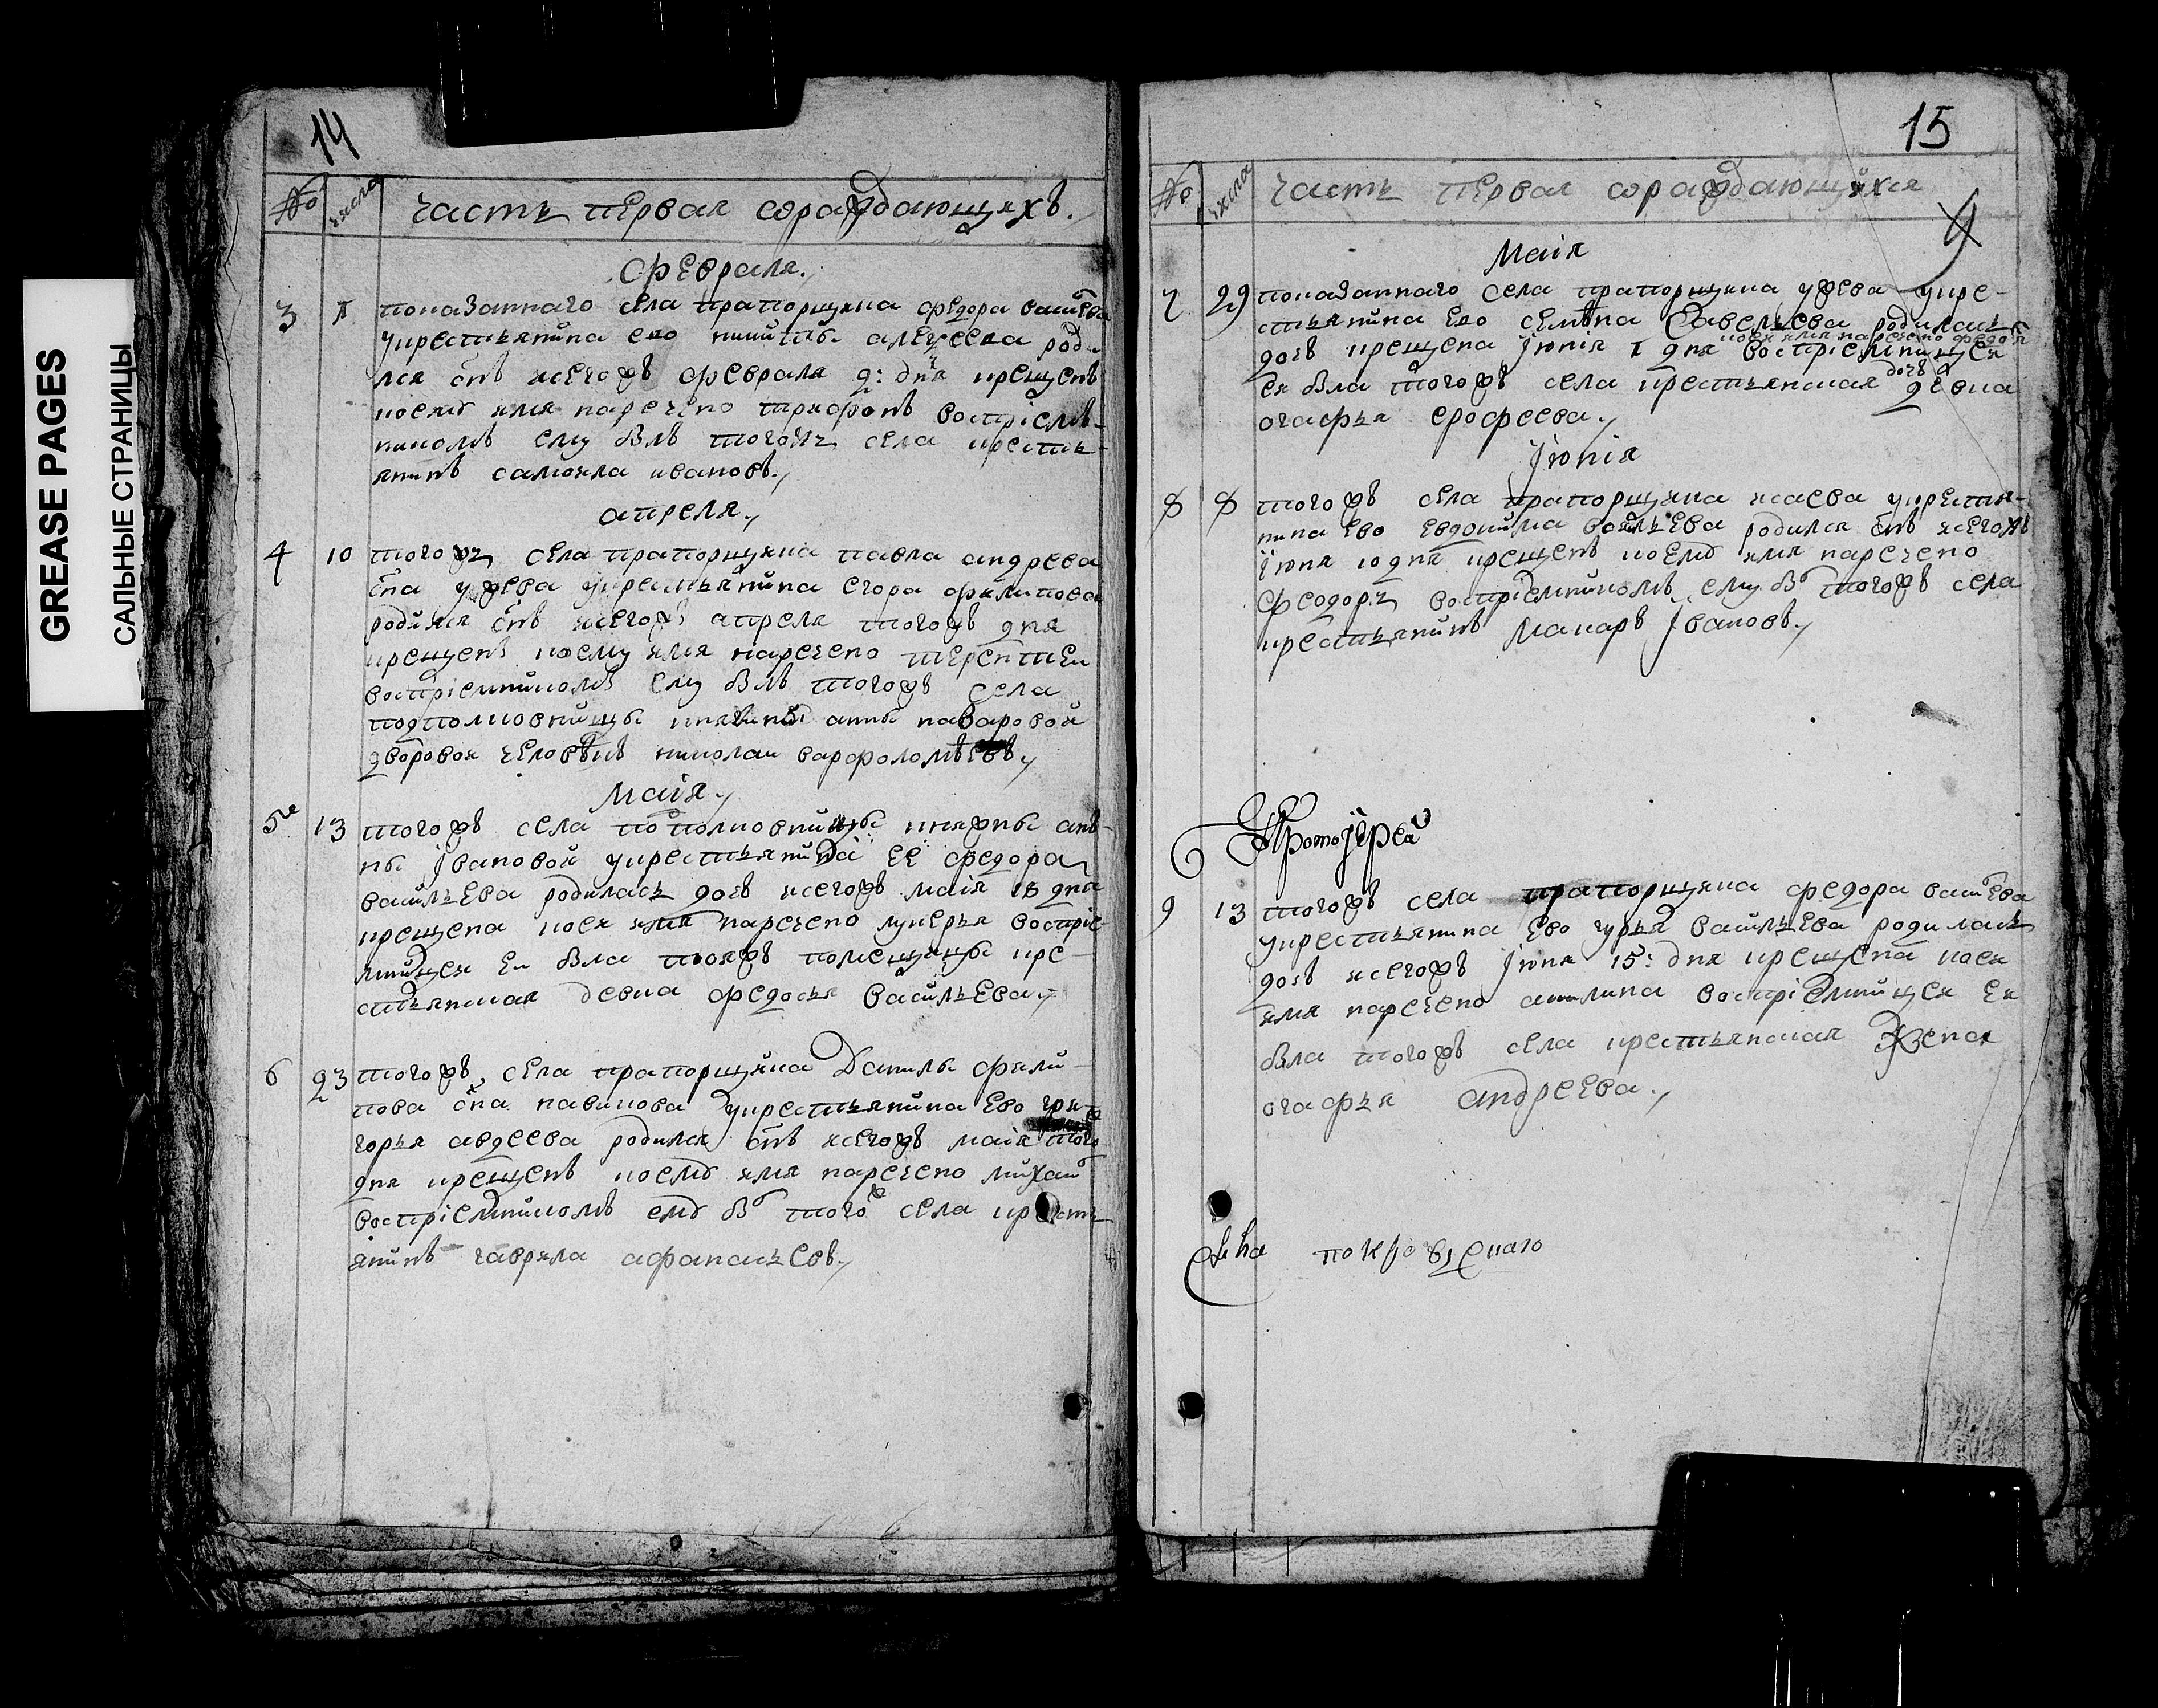 GREASE PAGES
САЛЬНЫЕ СТРАНИЦЫ
14
№ числа часть первая ораждающихъ.
Февраля.
3 1 показаннаго села прапорщика федора васильева
у крестьянина ево никиты алексеева роди
лся снъ и сегожъ февраля 2: дня крещенъ
коему имя наречено трифонъ восприем
ником ему былъ тогожъ села кресть-
янинъ самоила ивановъ.
апреля.
4 10 тогожъ села прапорщика павла андреева
сна ужева у крестьянина егора филипова
родился снъ и сегожъ апреля тогожъ дня
крещенъ коему имя наречено терентеи
восприемникомъ ему былъ тогожъ села
подполковницы княгини анны
дворовои человекъ николаи варфоломеевъ.
Маия.
5 13 тогожъ села подполковницы княжны ан-
ны Ивановой у крестьянина ее федора
васильева родилась дочь и сегожъ маия 18 дня
крещена коея имя наречено лукерья восприе-
мницеи еи была тояжъ помещицы кре-
стьянская девка федосья васильева.
6 23 тогожъ села прапорщика Данилы фили-
пова сна у крестьянина ево гри-
горья авдеева родился снъ и сегожъ маия того
дня крещенъ коему имя наречено михаи
восприемникомъ ему бы того села кресть
янинъ гаврила афанасьевъ.
15
№ числа часть первая ораждающихся
Маия
7 29 показаннаго села прапорщика ужева у кре-
стьянина ево семена Савельева родилась
дочь крещена июния 1 дня коея имя наречено восприемницея
ея была тогожъ села крестьянская дочь девка
огафья ерофеева.
Июния
8 8 тогожъ села прапорщика исаева у крестья-
нина ево евдокима васильева родился снъ и сегожъ
июня 10 дня крещенъ коему имя наречено
Феодоръ восприемникомъ ему бы тогожъ села
крестьянинъ Макаръ Ивановъ.
Протоиерей
9 13 тогожъ села прапорщика федора васильева
у крестьянина ево гурья васильева родилась
дочь и сегожъ июня 15: дня крещена коея
имя наречено акилина восприемницея ея
была тогожъ села крестьянская жена
огафья андреева.